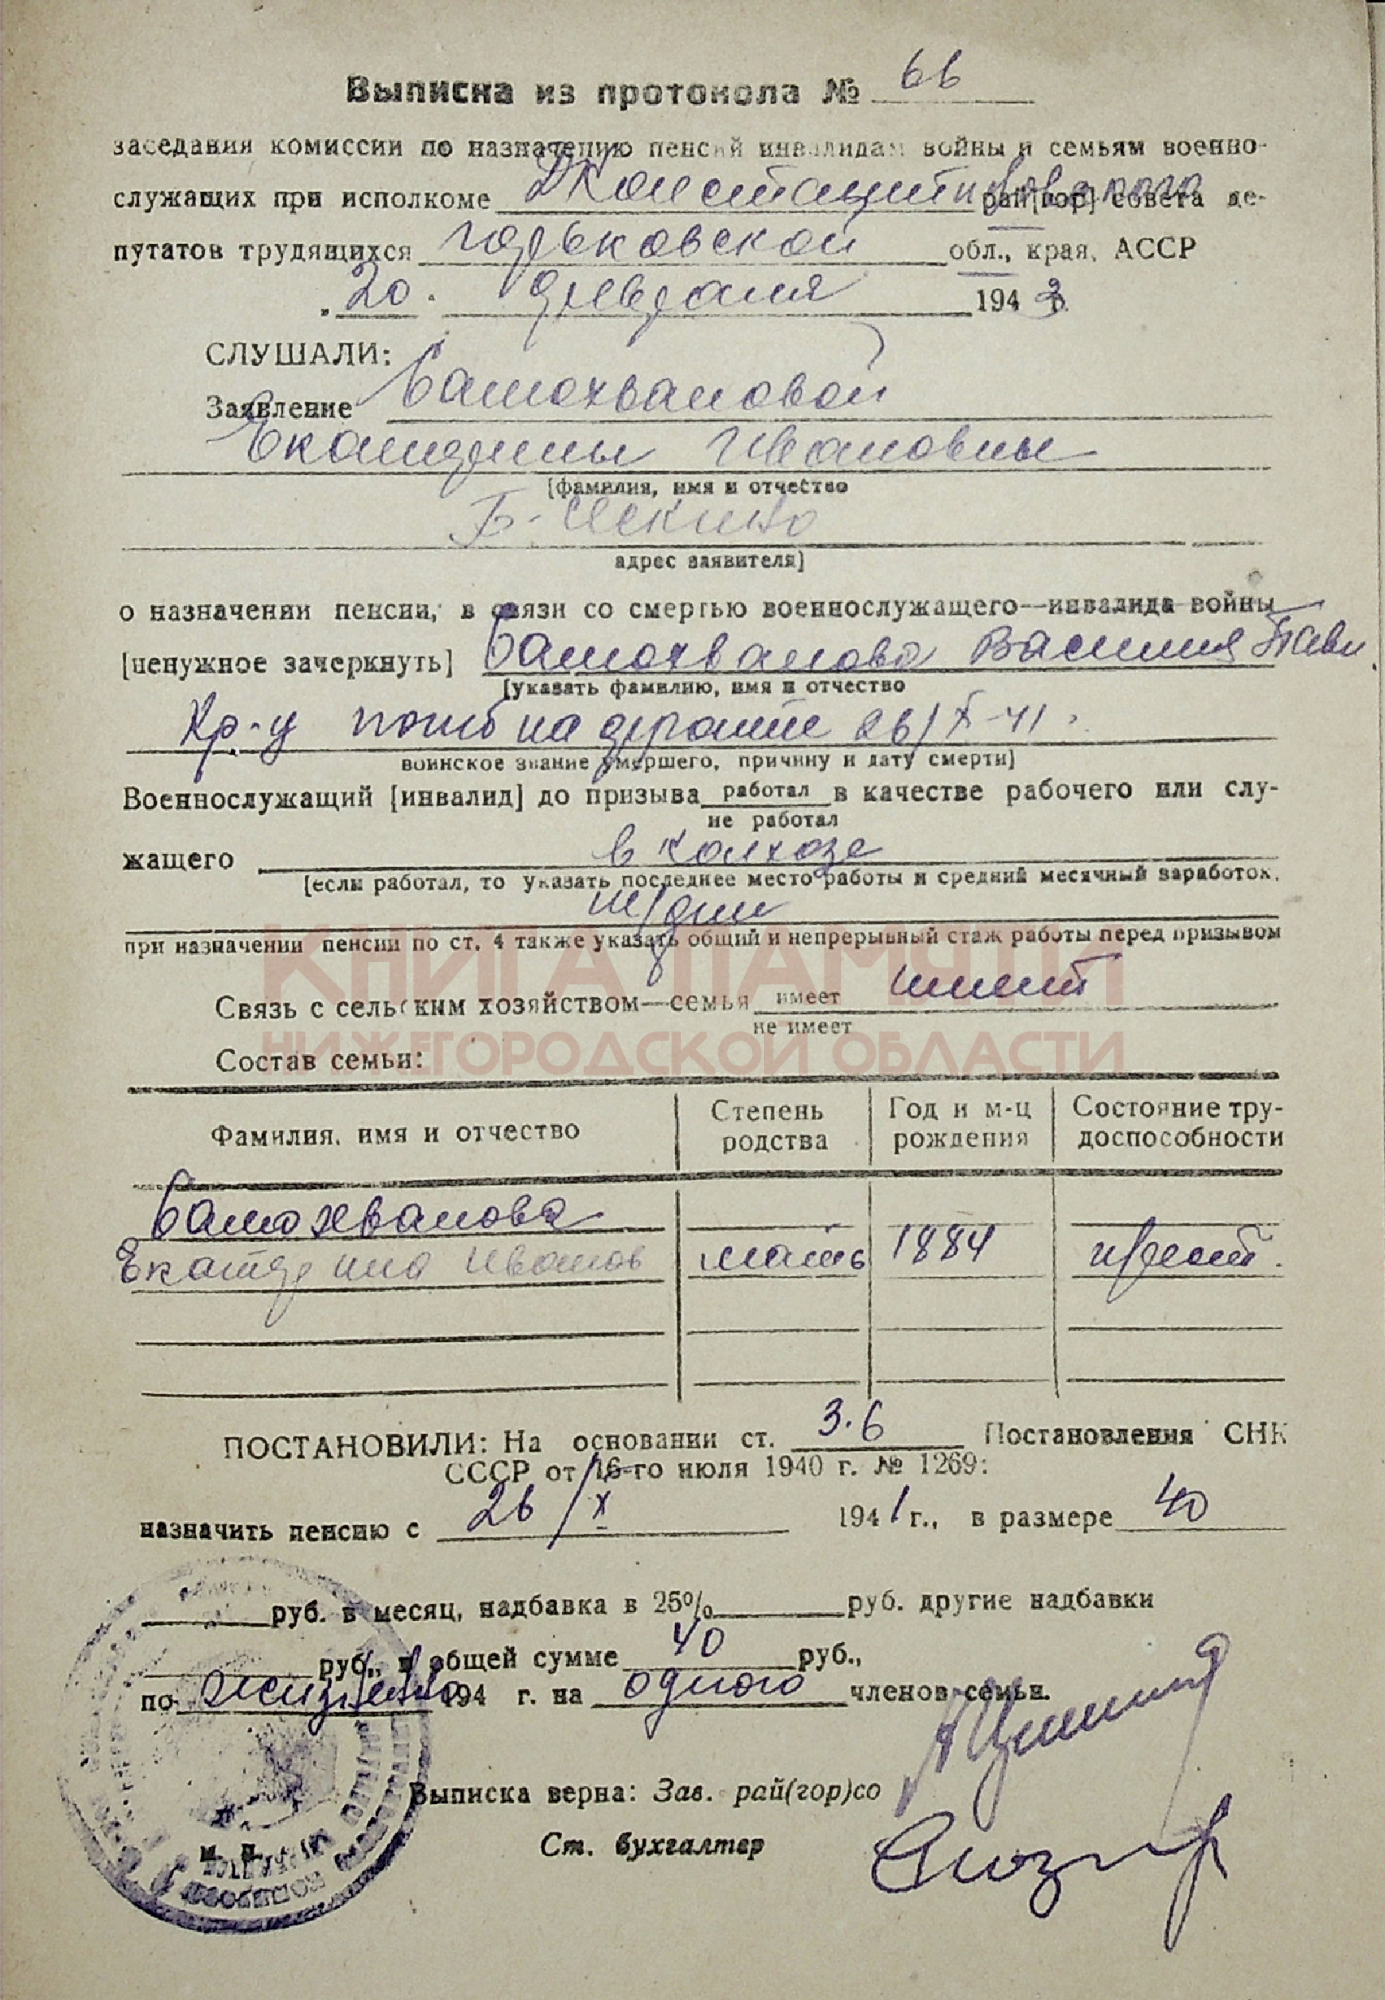 Выписка из протокола № 66
заседания комиссии по назначению пенсий инвалидам войны и семьям военно-
служащих при исполкоме ДКонстантиновского рай[гор] совета де-
путатов трудящихся Горьковской обл., края, АССР
„ 20. февраля 1943 г.
СЛУШАЛИ:
Заявление Самохваловой
Екатерины Ивановны
[фамилия, имя и отчество
Б-
адрес заявителя]
о назначении пенсии, в связи со смертью военнослужащего—инвалида войны
[ненужное зачеркнуть] Самохвалова Василия Павл.
[указать фамилию, имя и отчество
Кр-ц погиб на фронте 26/X-41.
воинское звание умершего, причину и дату смерти]
Военнослужащий [инвалид] до призыва работал в качестве рабочего или слу-
не работал
жащего в колхозе
[если работал, то указать последнее место работы и средний месячный заработок,
тр/дни
при назначении пенсии по ст. 4 также указать общий и непрерывный стаж работы перед призывом
КНИГА ПАМЯТИ
Связь с сельским хозяйством—семья имеет имеет
не имеет
НИЖЕГОРОДСКОЙ ОБЛАСТИ
Состав семьи:
Фамилия, имя и отчество Степень родства Год и м-ц рождения Состояние тру-доспособности
Самохвалова
Екатерина Иванов мать 1884
ПОСТАНОВИЛИ: На основании ст. 3.6 Постановления СНК
СССР от 16-го июля 1940 г. № 1269:
назначить пенсию с 26/X 1941 г., в размере 40
руб. в месяц, надбавка в 25% руб. другие надбавки
руб., в общей сумме 40 руб.,
по жизненно 194 г. на одного членов семьи.
Выписка верна: Зав. рай(гор)со
Ст. бухгалтер
м. п.